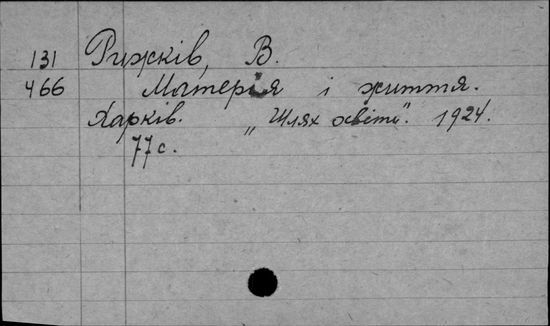 131 Рижків, В.
466 Матерія і життя.
Харків. „Шлях освіти". 1924.
77 с.